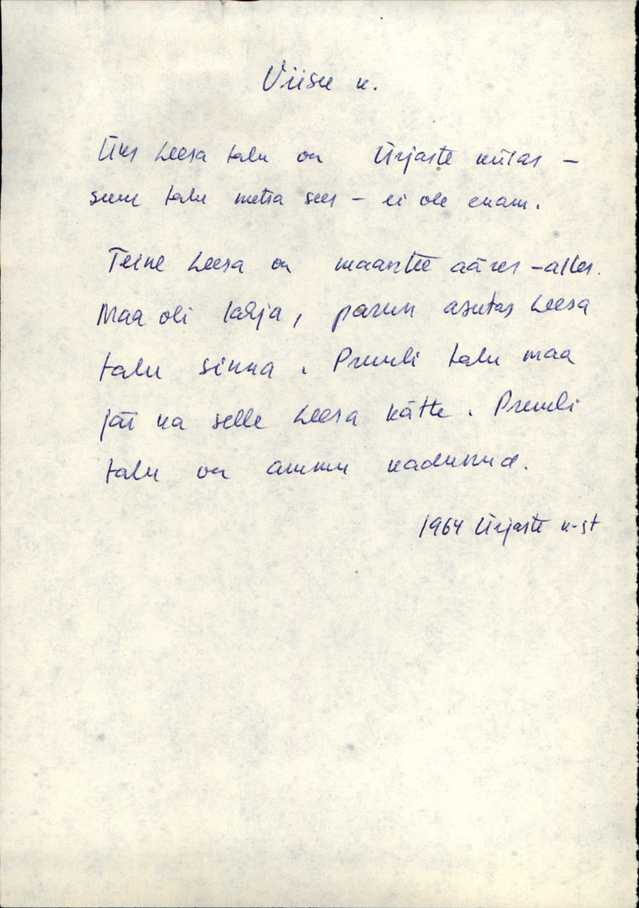 Viisu k.
Üks Leesa talu on Ürjaste külas –
suur talu metsa sees – ei ole enam.
Teine Leesa on maantee ääres – alles.
Maa oli lahja, parun asutas Leesa
talu sinna. Pruuli talu maa
jäi ka selle Leesa kätte. Pruuli
talu on ammu kadunud.
1964 Ürjaste k-st